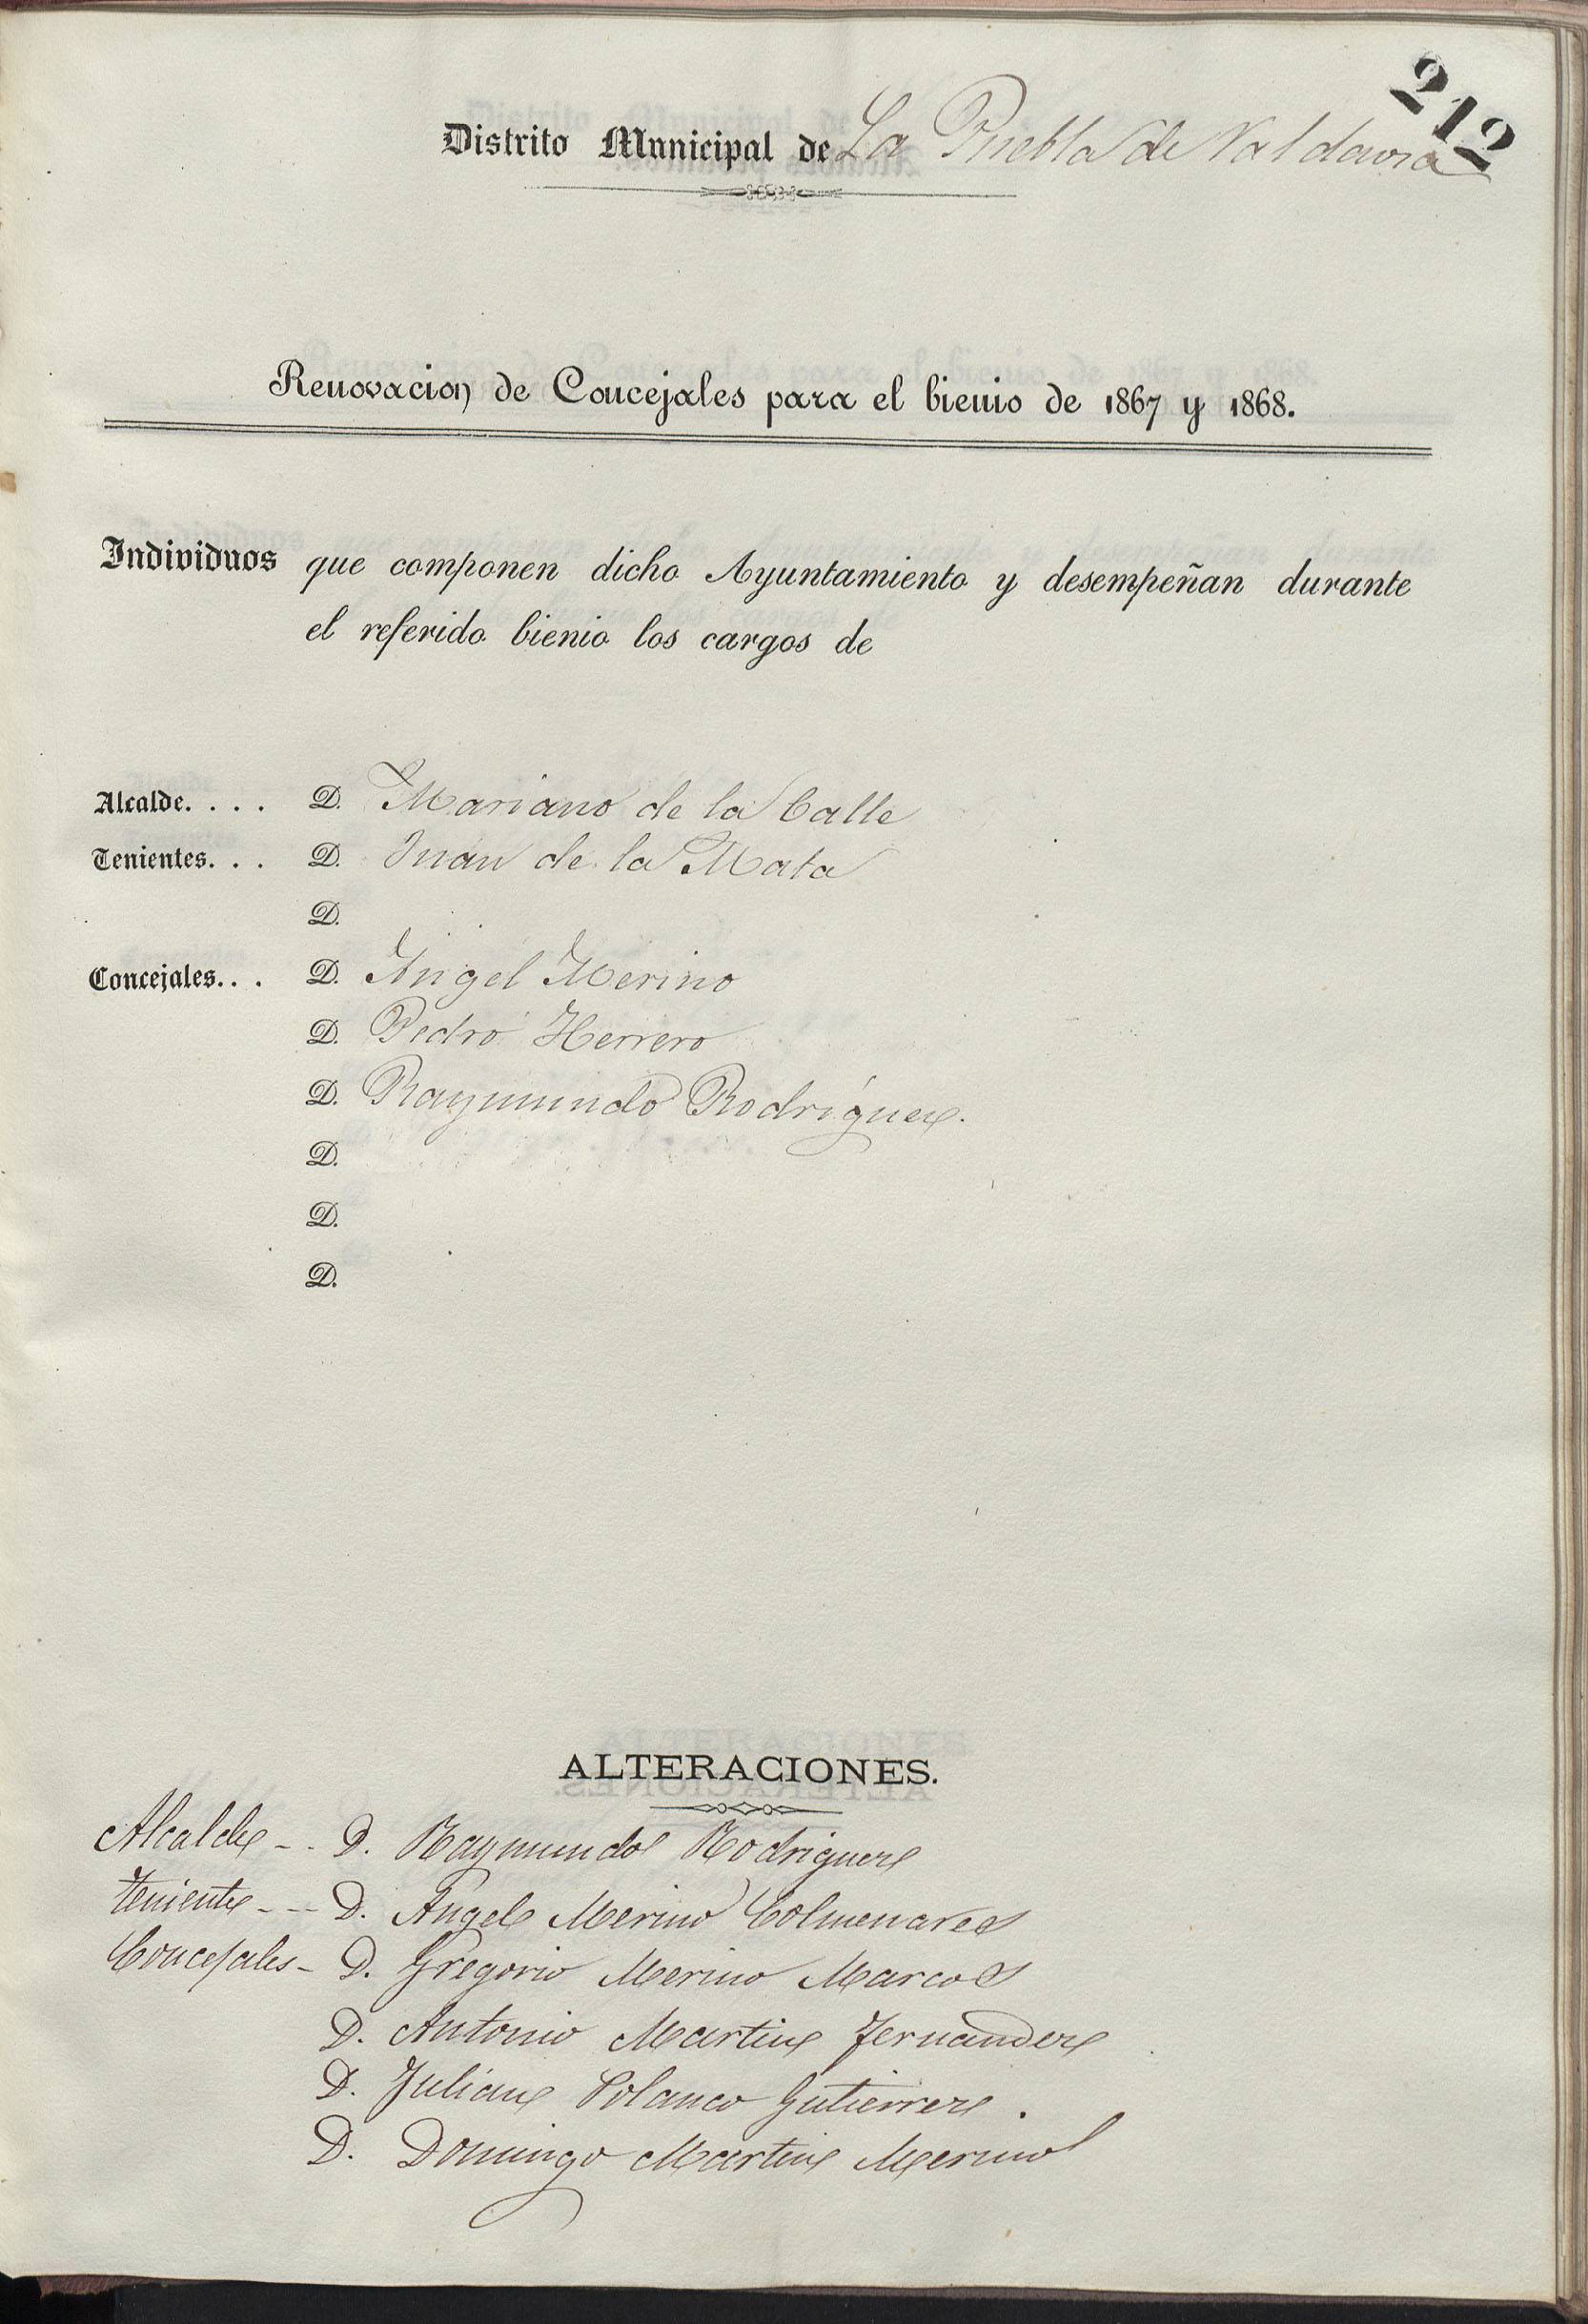 212
Distrito Municipal de La Puebla de Valdavia
Renovacion de Concejales para el bienio de 1867 y 1868.
Individuos que componen dicho Ayuntamiento y desempeñan durante
el referido bienio los cargos de
Alcalde. . . . D. Mariano de la Calle
Tenientes. . . D. Juan de la Mata
D.
Concejales. . . D. Angel Merino
D. Pedro Herrero
D. Raymundo Rodríguez.
D.
D.
D.
ALTERACIONES.
Alcalde - . D. Raymundo Rodriguez
Teniente - - - D. Angel Merino Colmenares
Concejales - D. Gregorio Merino Marcos
D. Antonio Martin Fernandez
D. Julian Polanco Gutierrez.
D. Domingo Martin Merino